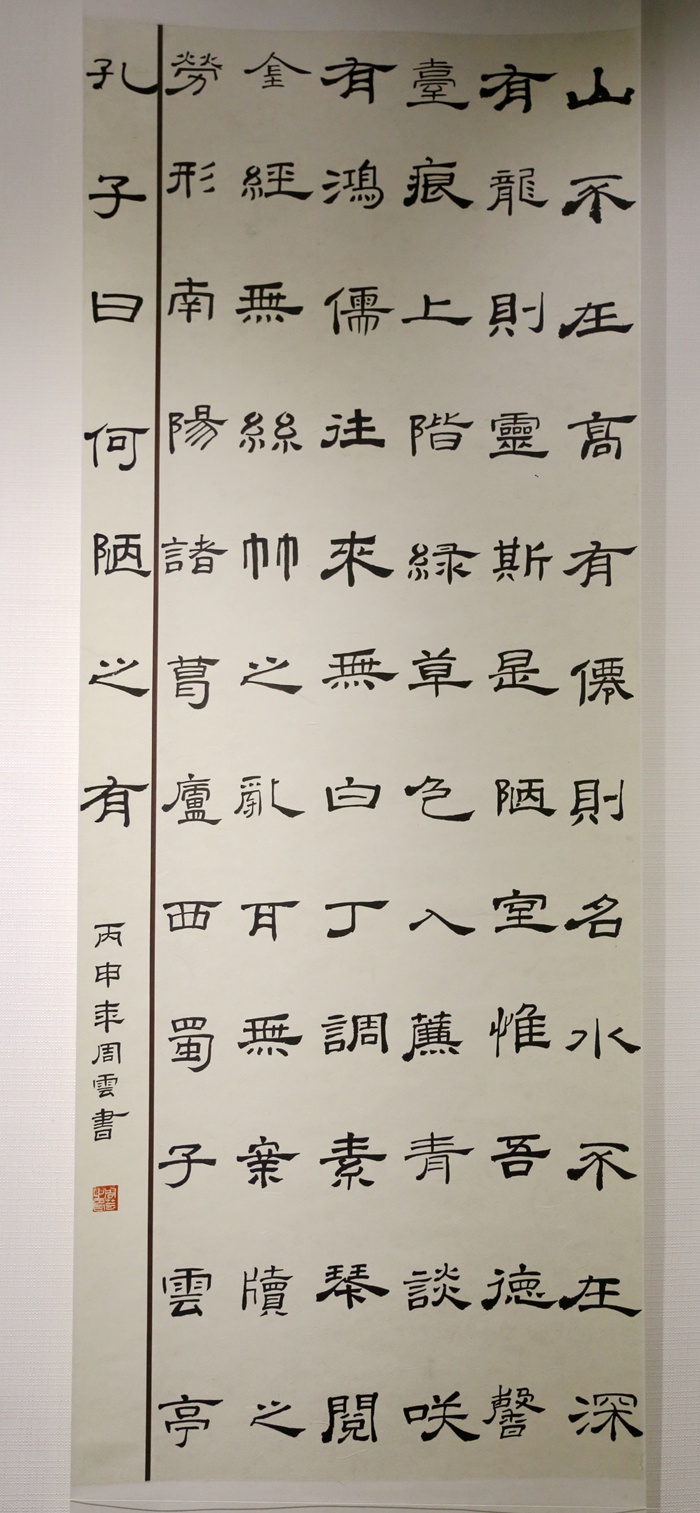 山不在高有僊則名水不在深
有龍則靈斯是陋室惟吾德馨
臺痕上階綠草色入薕青談咲
有鴻儒往來無白丁調素琴閱
金經無絲竹之亂耳無案牘之
勞形南陽諸葛廬西蜀子雲亭
孔子曰何陋之有
丙申年周雲書